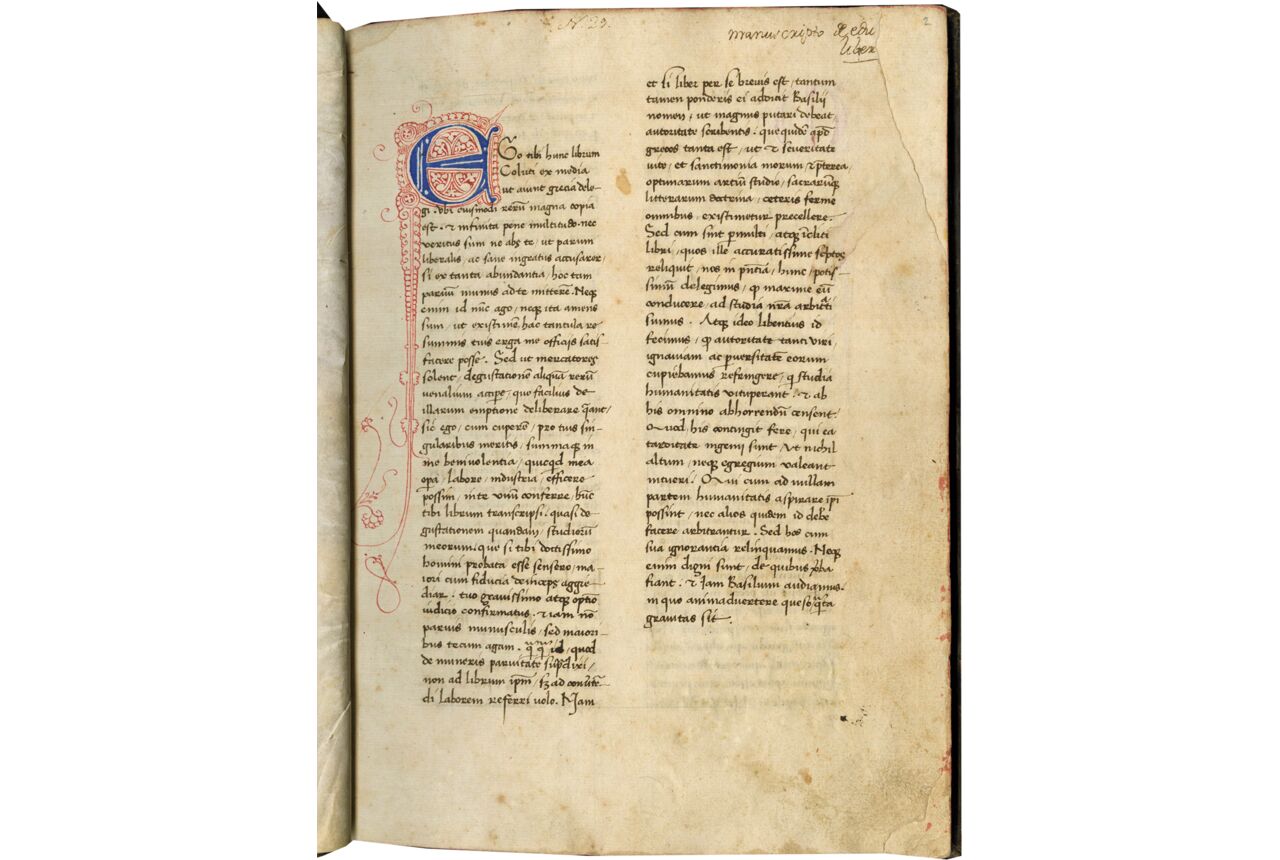 N. 29.
manuscripto de edu
liber
2
EGo tibi hunc librum
Coluti ex media
ut aiunt grecia dele-
gi. vbi eiusmodi rerū magna copia
est. & infinita pene multitudo. nec
veritus sum ne abs te, ut parum
liberalis, ac sane ingratus accusarer,
si ex tanta abundantia, hoc tam
paruū munus ad te mitterē. Neqȝ
enim id nūc ago, neqȝ ita amens
sum, ut existimē, hac tantula re
summis tuis erga me officiis satis-
facere posse. Sed ut mercatores
solent, degustationē aliquā rerū
venalium accipe, quo facilius de
illarum emptione deliberare queant,
sic ego, cum cuperē, pro tuis sin-
gularibus meritis, summaqȝ in
me beniuolentia, quicqd mea
opa, labore, industria, efficere
possim, in te vnū conferre, hūc
tibi librum transcripsi. quasi de-
gustationem quandam, studiorū
meorum. que si tibi doctissimo
homini probata esse sensero, ma-
iori cum fiducia deinceps aggre-
diar. tuo grauissimo atqȝ optīo
iudicio confirmatus. & iam nō
paruis munusculis, sed maiori-
bus tecum agam. q̄q̄ id, quod
de muneris paruitate sup̄ dixi,
non ad librum ip̄m, sȝ ad conūtē-
di laborem referri uolo. Nam
et si liber per se breuis est, tantum
tamen ponderis ei addicit Basilii
nomen, ut magnus putari debeat,
autoritate scribentis. que quidē apd
grecos tanta est, ut & seueritate
uite, et sanctimonia morum, & p̄terea
optimarum artiū studio, sacrarūqȝ
litterarum doctrina, ceteris ferme
omnibus, existimetur precellere.
Sed cum sint p̄multi, atqȝ īcliti
libri, quos ille accuratissime sc̄ptos
reliquit, nos in p̄ntia, hunc, potis-
simū delegimus, q̄ maxime eū
conducere, ad studia nr̄a arbit̄ti
sumus. Atqȝ ideo libentius id
fecimus, q̄ autoritate tanti viri,
ignauiam ac p̄uersitatē eorum
cupiebamus refringere, q̄ studia
humanitatis vituperant. & ab
his omnino abhorrendū censent.
Quod his contingit fere, qui ea
tarditate ingenii sunt, Vt nichil
altum, neqȝ egregium valeant
intueri. Qui cum ad nullam
partem humanitatis aspirare ip̄i
possint, nec alios quidem id debe
facere arbitrantur. Sed hos cum
sua ignorantia relinquamus. Neqȝ
enim digni sunt, de quibus v̄ba
fiant. & Iam Basilium audiamus.
in quo animaduertere queso, q̄ta
grauitas sit.